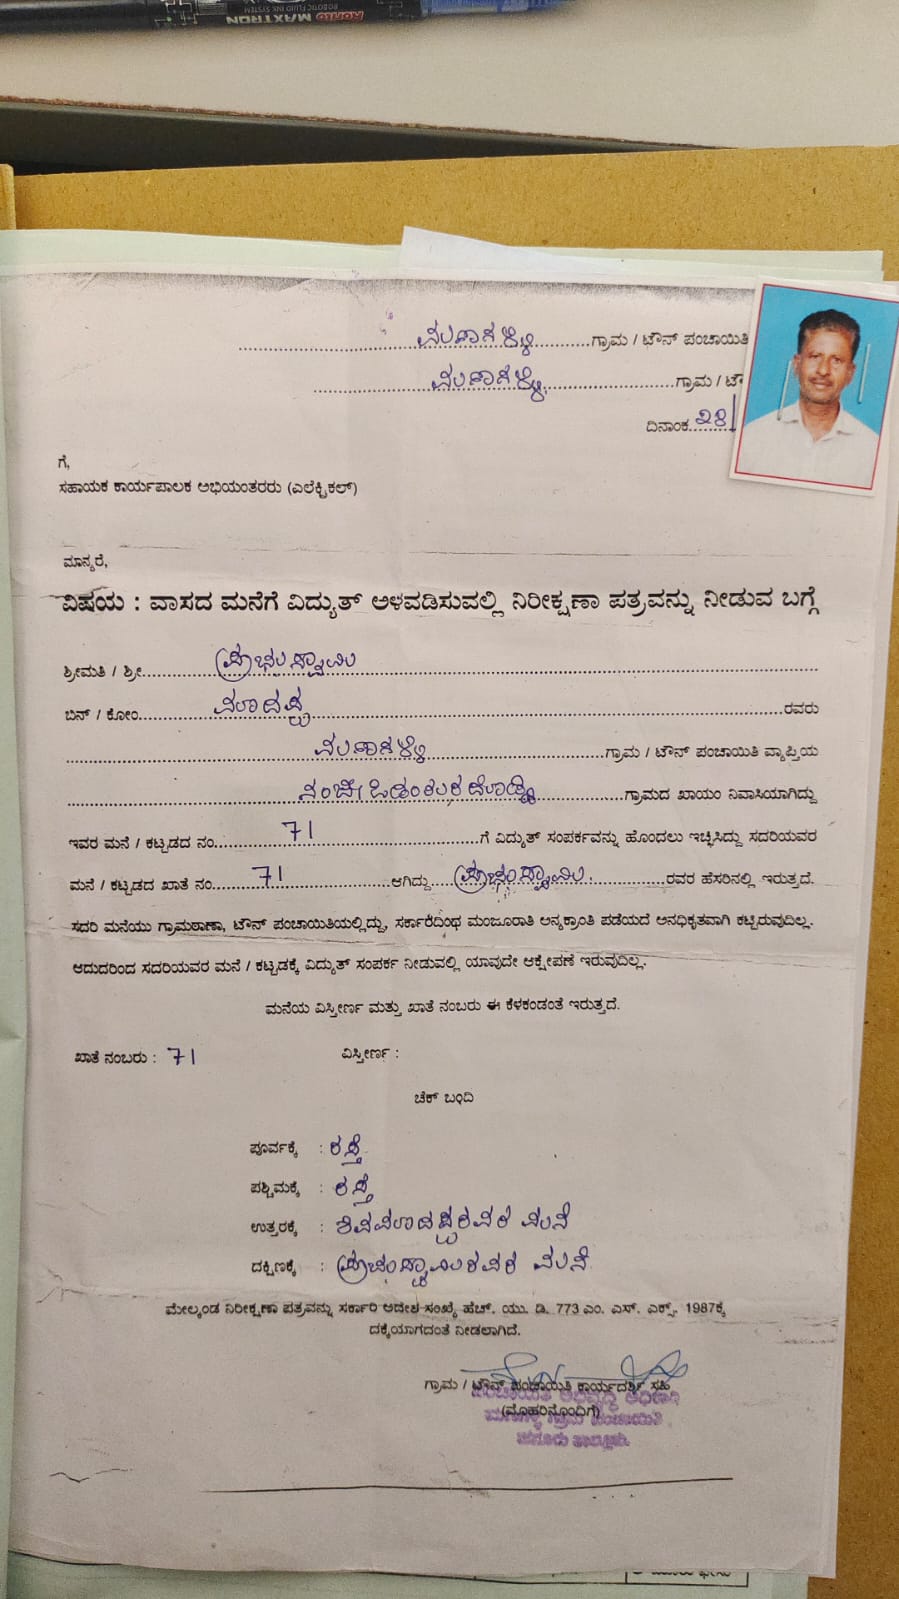 Rorito MAXTRON
ROBOTIC FLUID INK SYSTEM
ಮಡಾಗಳ್ಳಿ ಗ್ರಾಮ / ಟೌನ್ ಪಂಚಾಯಿತಿ
ಮಡಾಗಳ್ಳಿ ಗ್ರಾಮ / ಟೌ
ದಿನಾಂಕ 28/
ಗೆ,
ಸಹಾಯಕ ಕಾರ್ಯಪಾಲಕ ಅಭಿಯಂತರರು (ಎಲೆಕ್ಟ್ರಿಕಲ್)
ಮಾನ್ಯರೆ,
ವಿಷಯ : ವಾಸದ ಮನೆಗೆ ವಿದ್ಯುತ್ ಅಳವಡಿಸುವಲ್ಲಿ ನಿರೀಕ್ಷಣಾ ಪತ್ರವನ್ನು ನೀಡುವ ಬಗ್ಗೆ
ಶ್ರೀಮತಿ / ಶ್ರೀ ಪ್ರಭುಸ್ವಾಮಿ
ಬಿನ್ / ಕೋಂ ಮಾದಪ್ಪ ರವರು
ಮಡಾಗಳ್ಳಿ ಗ್ರಾಮ / ಟೌನ್ ಪಂಚಾಯಿತಿ ವ್ಯಾಪ್ತಿಯ
ಗ್ರಾಮದ ಖಾಯಂ ನಿವಾಸಿಯಾಗಿದ್ದು
ಇವರ ಮನೆ / ಕಟ್ಟಡದ ನಂ. 71 ಗೆ ವಿದ್ಯುತ್ ಸಂಪರ್ಕವನ್ನು ಹೊಂದಲು ಇಚ್ಛಿಸಿದ್ದು ಸದರಿಯವರ
ಮನೆ / ಕಟ್ಟಡದ ಖಾತೆ ನಂ. 71 ಆಗಿದ್ದು ಪ್ರಭುಸ್ವಾಮಿ. ರವರ ಹೆಸರಿನಲ್ಲಿ ಇರುತ್ತದೆ.
ಸದರಿ ಮನೆಯು ಗ್ರಾಮಠಾಣಾ, ಟೌನ್ ಪಂಚಾಯಿತಿಯಲ್ಲಿದ್ದು, ಸರ್ಕಾರದಿಂಥ ಮಂಜೂರಾತಿ ಅನ್ಯಕ್ರಾಂತಿ ಪಡೆಯದೆ ಅನಧಿಕೃತವಾಗಿ ಕಟ್ಟಿರುವುದಿಲ್ಲ.
ಆದುದರಿಂದ ಸದರಿಯವರ ಮನೆ / ಕಟ್ಟಡಕ್ಕೆ ವಿದ್ಯುತ್ ಸಂಪರ್ಕ ನೀಡುವಲ್ಲಿ ಯಾವುದೇ ಆಕ್ಷೇಪಣೆ ಇರುವುದಿಲ್ಲ.
ಮನೆಯ ವಿಸ್ತೀರ್ಣ ಮತ್ತು ಖಾತೆ ನಂಬರು ಈ ಕೆಳಕಂಡಂತೆ ಇರುತ್ತದೆ.
ಖಾತೆ ನಂಬರು : 71 ವಿಸ್ತೀರ್ಣ :
ಚೆಕ್ ಬಂದಿ
ಪೂರ್ವಕ್ಕೆ : ರಸ್ತೆ
ಪಶ್ಚಿಮಕ್ಕೆ : ರಸ್ತೆ
ಉತ್ತರಕ್ಕೆ : ಶಿವಮಾದಪ್ಪರವರ ಮನೆ
ದಕ್ಷಿಣಕ್ಕೆ : ಪ್ರಭುಸ್ವಾಮಿರವರ ಮನೆ
ಮೇಲ್ಕಂಡ ನಿರೀಕ್ಷಣಾ ಪತ್ರವನ್ನು ಸರ್ಕಾರಿ ಆದೇಶ ಸಂಖ್ಯೆ ಹೆಚ್. ಯು. ಡಿ. 773 ಎಂ. ಎಸ್. ಎಕ್ಸ್. 1987ಕ್ಕೆ
ದಕ್ಕೆಯಾಗದಂತೆ ನೀಡಲಾಗಿದೆ.
ಗ್ರಾಮ / ಟೌನ್ ಪಂಚಾಯಿತಿ ಕಾರ್ಯದರ್ಶಿ ಸಹಿ
(ಮೊಹರಿನೊಂದಿಗೆ)
ಪಂಚಾಯಿತಿ ಅಭಿವೃದ್ಧಿ ಅಧಿಕಾರಿ
ಗ್ರಾಮ ಪಂಚಾಯಿತಿ